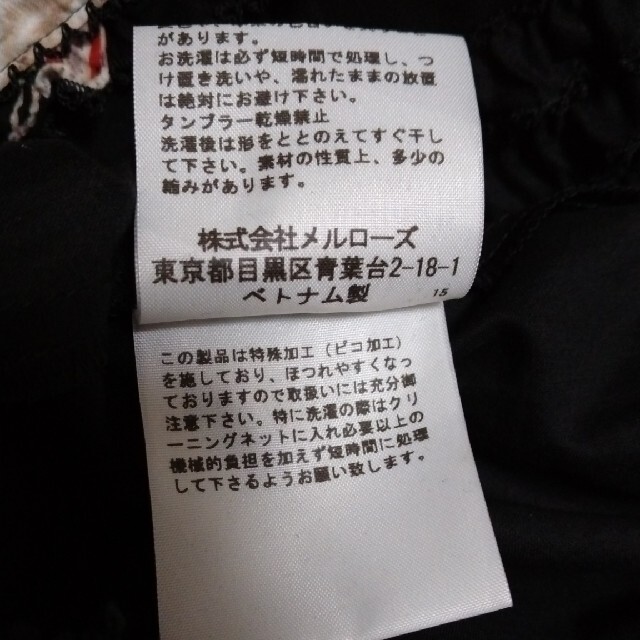 があります。
お洗濯は必ず短時間で処理し、つ
け置き洗いや、濡れたままの放置
は絶対にお避け下さい。
タンブラー乾燥禁止
洗濯後は形をととのえてすぐ干し
て下さい。素材の性質上、多少の
縮みがあります。
株式会社メルローズ
東京都目黒区青葉台2-18-1
ベトナム製 15
この製品は特殊加工(ピコ加工)
を施しており、ほつれやすくなっ
ておりますので取扱いには充分御
注意下さい。特に洗濯の際はクリ
ーニングネットに入れ必要以上の
機械的負担を加えず短時間に処理
して下さるようお願い致します。